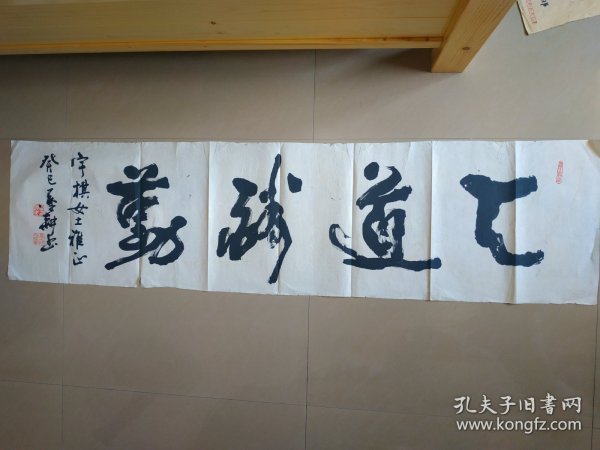 天道酬勤
宇棋女士雅正
癸巳
孔夫子旧书网
www.kongfz.com